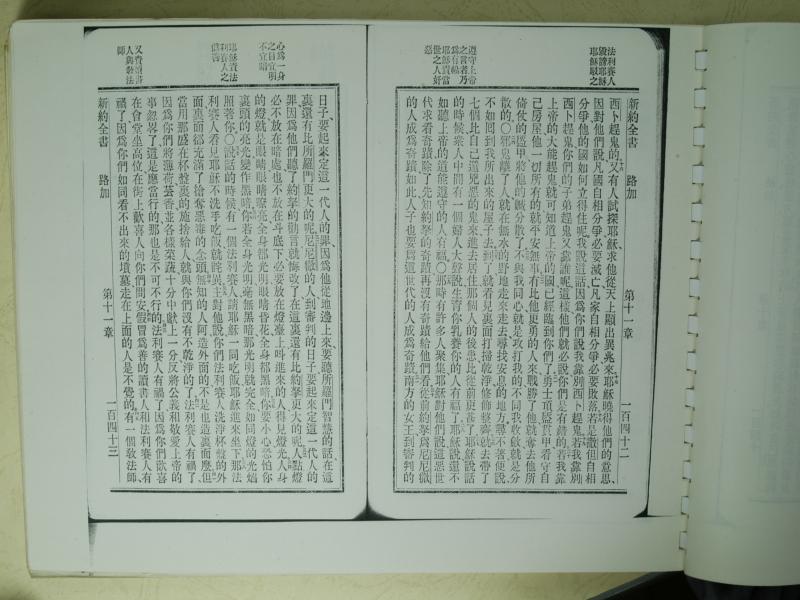 法利賽人
毀謗耶穌
耶穌駁之
遵守上帝
之言者乃
為有福
耶穌責當
世之人奸
惡
新約全書　路加　第十一章　一百四十二
西卜趕鬼的又有人試探耶穌求他從天上顯出異兆來耶穌曉得他們的意思、
因對他們說凡國自相分爭必要滅亡凡家自相分爭必要敗落若是散但自相
分爭他的國如何立得住呢我說這話因爲你們說我靠別西卜趕鬼若我靠別
西卜趕鬼你們的子弟趕鬼又靠誰呢這樣他們就必說你們是有錯的若我靠
上帝的大能趕鬼就可知道上帝的國已經臨到你們了勇士頂盔貫甲看守自
己房屋他一切所有的就平安無事有比他更勇的人來戰勝了他就奪去他所
倚仗的盔甲將他的贓分散了不與我同心就是攻打我的不同我收斂就是分
散的○邪鬼離了人就在無水的野地走來走去尋找安息的地方尋不著便說
不如回到我所出來的屋子去到了就看見裏面打掃乾淨修飾整齊就去帶了
七個比自己還兇惡的鬼來進去居住那個人的後患比從前更甚了耶穌說話
的時候衆人中間有一個婦人大聲說生育你乳養你的人有福了耶穌說還不
如聽上帝的道能遵守的人有福○那時有許多人聚集耶穌對他們說這惡世
代求看奇蹟除了先知約拏的奇蹟再沒有奇蹟給他們看從前約拏爲尼尼微
的人成爲奇蹟如此人子也要爲這世代的人成爲奇蹟南方的女王到審判的
心爲一身
之目宜明
不宜暗
耶穌責法
利賽人之
僞善
又責讀書
人與教法
師
日子、要起來定這一代人的罪因爲他從地邊上來要聽所羅門智慧的話在這
裏還有比所羅門更大的呢尼尼微的人到審判的日子要起來定這一代人的
罪因爲他們聽了約拏的勸言就悔改了在這裏還有比約拏更大的呢人點燈
必不放在暗處也不放在斗底下必要放在燈臺上叫進來的人得見燈光人身
的燈就是眼睛眼睛嘹亮全身都光明眼睛昏花全身都黑暗你要小心恐怕你
裏頭的亮光變作黑暗你若全身光明毫無黑暗那光明就完全如同燈的光熖
照著你○說話的時候有一個法利賽人請耶穌一同吃飯耶穌進來坐下那法
利賽人看見耶穌不洗手吃飯就詫異主對他說你們法利賽人洗淨杯盤的外
面裏面都充滿了搶奪惡毒的念頭無知的人阿造外面的不是也造裏面麼但
當用那盛在杯盤裏的施捨給人就與你們沒有不乾淨的了法利賽人有福了
因爲你們將薄荷芸香並各樣菜蔬十分中獻上一分反將公義和敬愛上帝的
事忽畧了這是應當行的那也是不可不行的法利賽人有福了因爲你們歡喜
在會堂坐高位在街上歡喜人向你們問安假冒爲善的讀書人和法利賽人有
福了因爲你們如同看不出來的墳墓走在上面的人是不覺的有一個敎法師、
新約全書　路加　第十一章　一百四十三